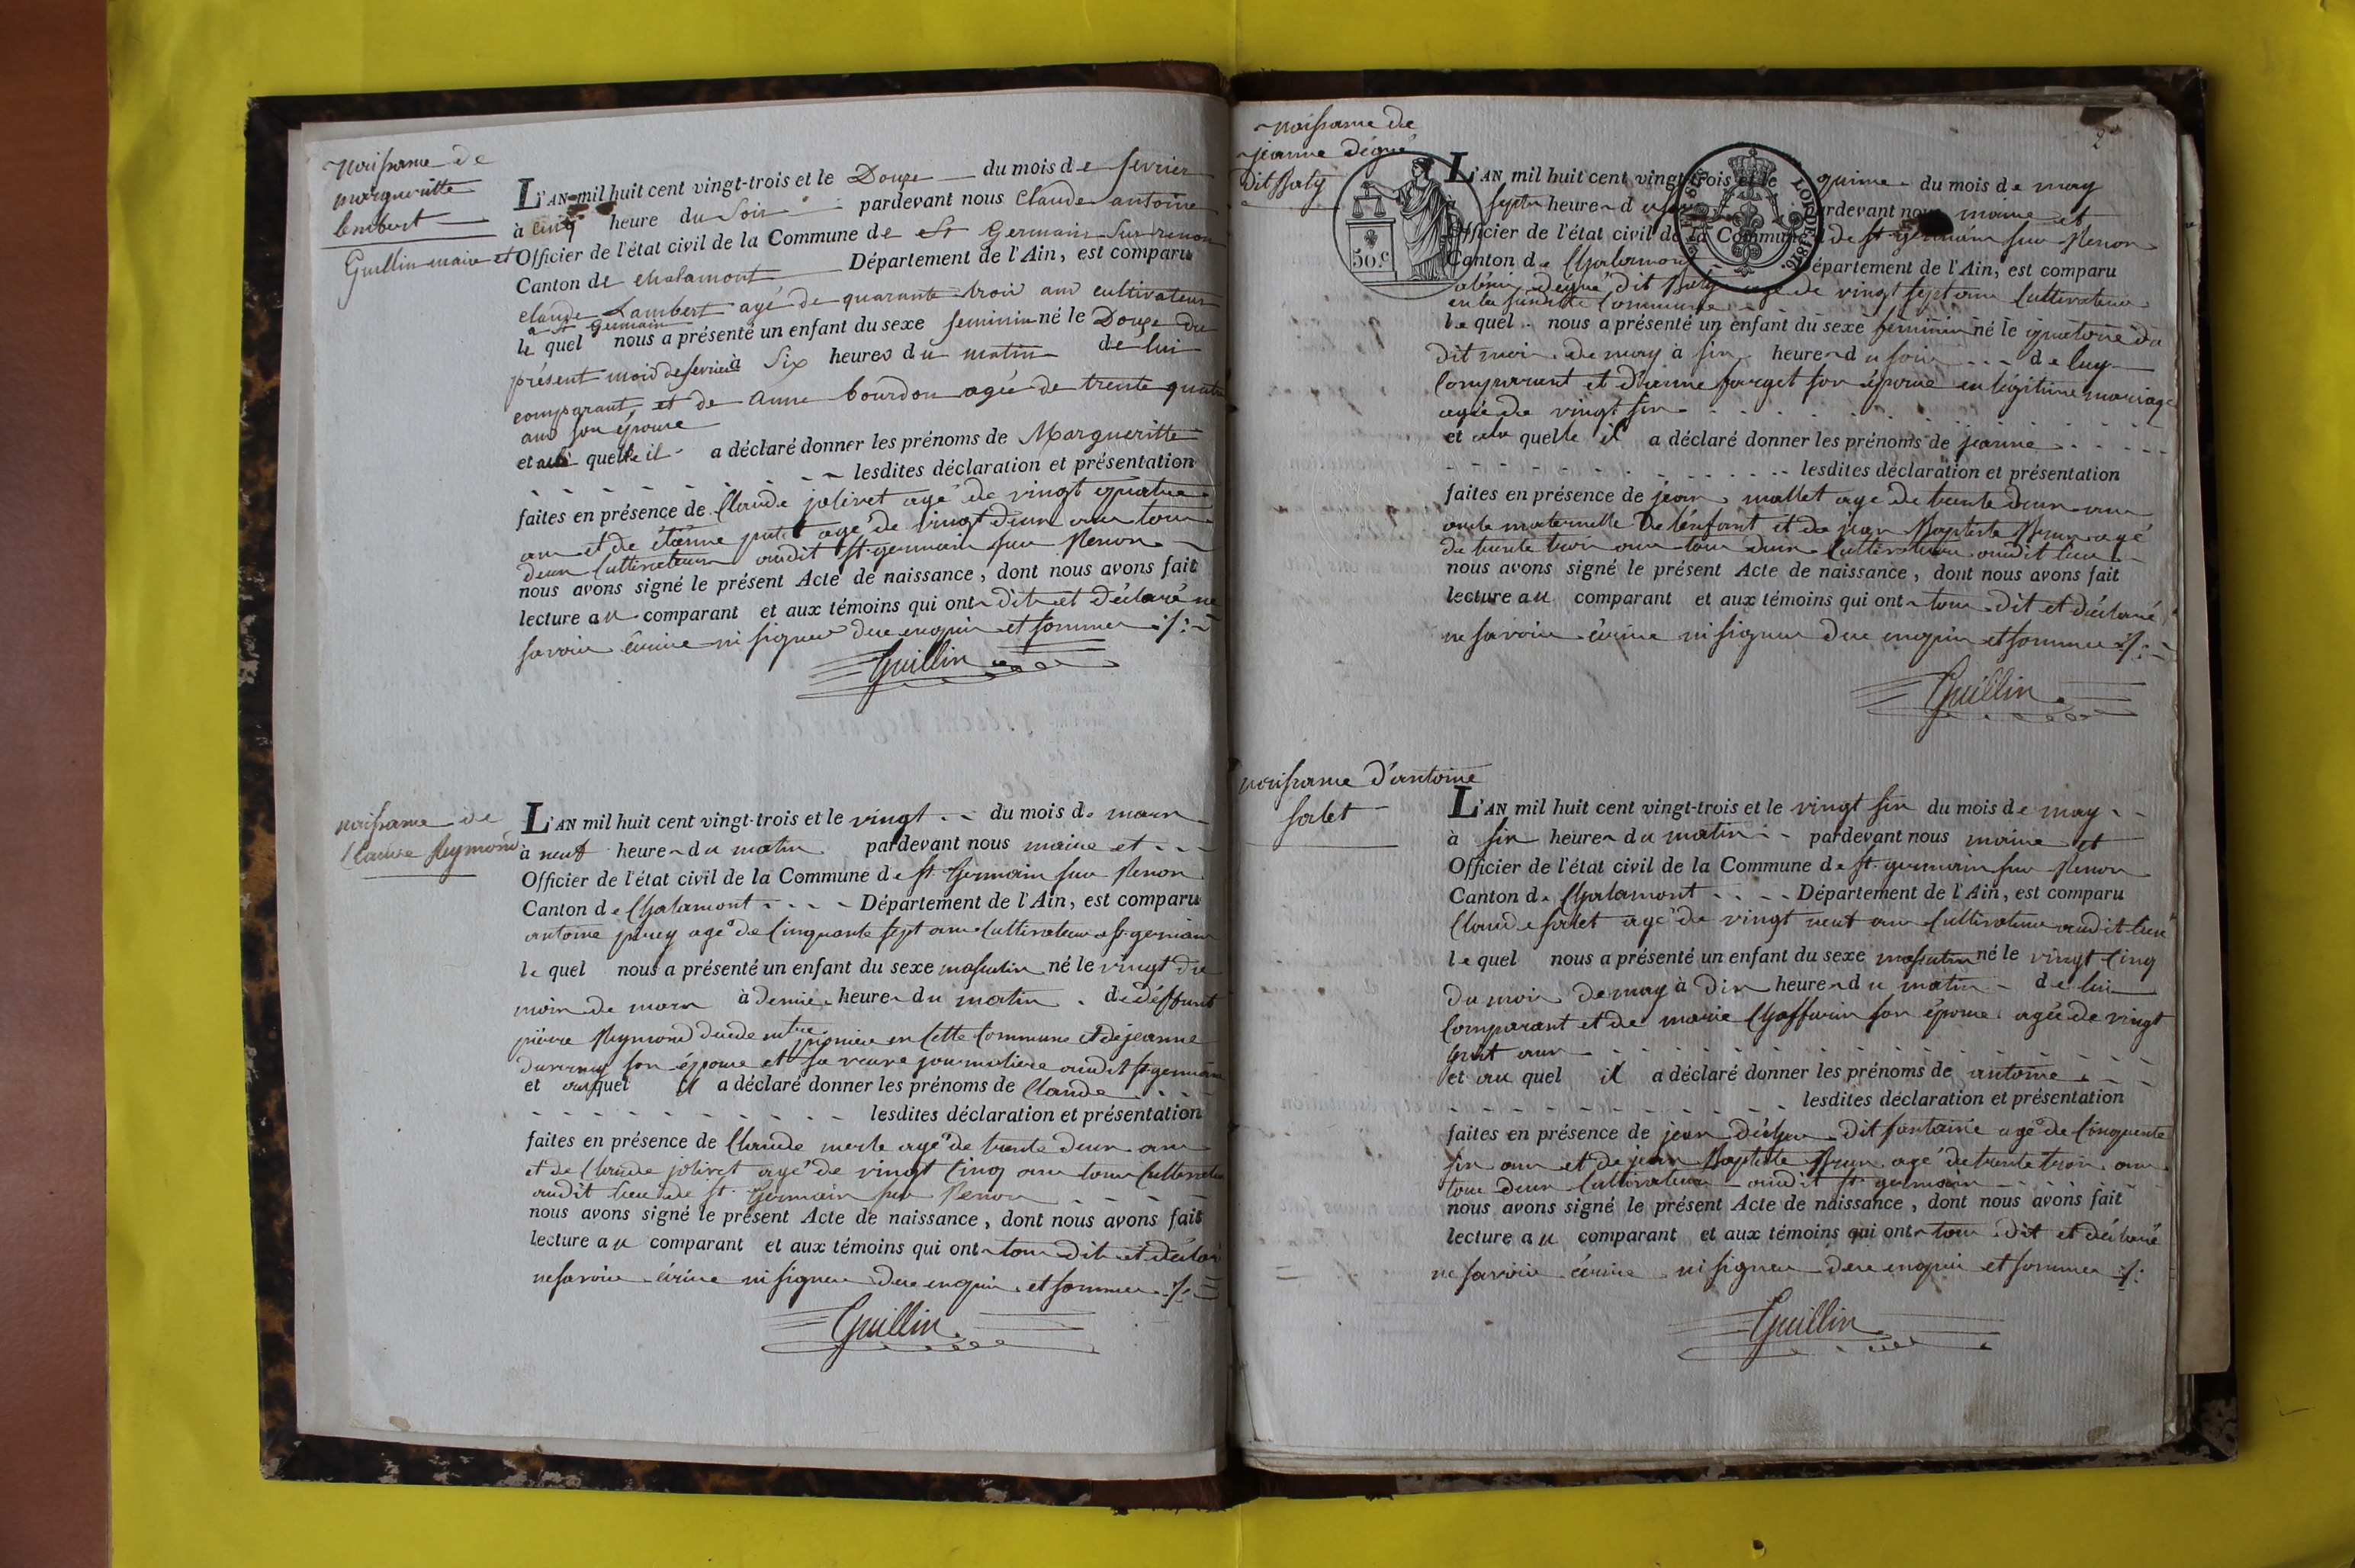 Naissance de
margueritte
lembert
Guillin maire et
L'AN mil huit cent vingt-trois et le Douze du mois de fevrier
à cinq heure du Soir pardevant nous Claude antoine
Officier de l'état civil de la Commune de St Germain Sur renon
Canton de chalamont Département de l'Ain, est comparu
claude Lambert agé de quarante trois ans cultivateur
a St Germain
le quel nous a présenté un enfant du sexe feminin né le Douze du
présent mois de fevrier à Six heures du matin de lui
comparant, et de anne bourdon agée de trente quatre
ans son épouse
et a la quelle il a déclaré donner les prénoms de Margueritte
lesdites déclaration et présentation
faites en présence de Claude jolivet agé de vingt quatre
ans et de étienne agé de vingt deux ans tous
deux Cultivateurs audit St. germain sur Renon
nous avons signé le présent Acte de naissance, dont nous avons fait
lecture au comparant et aux témoins qui ont dit et déclaré ne
savoir écrire ni signer de ce enquis et sommés ./.
Guillin
naissance de
Claude Reymond
L'AN mil huit cent vingt-trois et le vingt du mois de mars
à neuf heures du matin pardevant nous maire et
Officier de l'état civil de la Commune de St Germain sur Renon
Canton de Chalamont Département de l'Ain, est comparu
antoine agé de Cinquante sept ans Cultivateur a St. germain
le quel nous a présenté un enfant du sexe masculin né le vingt du
mois de mars à demie heure du matin de déffunt
pierre Reymond en Cette Commune et de jeanne
son épouse et sa veuve journaliere audit St germain
et auquel il a déclaré donner les prénoms de Claude
lesdites déclaration et présentation
faites en présence de Claude merle agé de trente deux ans
et de Claude jolivet agé de vingt Cinq ans tous Cultivateurs
audit lieu de St. Germain sur Renon
nous avons signé le présent Acte de naissance, dont nous avons fait
lecture au comparant et aux témoins qui ont tous dit et déclaré
ne savoir écrire ni signer de ce enquis et sommés ./.
Guillin
2
naissance de
jeanne dégué
dit Baty
50.c
LOI DE 1816
L'AN mil huit cent vingt-trois et le quinze du mois de may
à sept heures du soir pardevant nous maire et
Officier de l'état civil de la Commune de St germain sur Renon
Canton de Chalamont Département de l'Ain, est comparu
dégué dit Baty agé de vingt sept ans Cultivateur
en la susditte Commune
le quel nous a présenté un enfant du sexe féminin né le quatorze du
dit mois de may à six heures du soir de luy
Comparant et d'anne forget son épouse en légitime mariage
agée de vingt six
et a la quelle il a déclaré donner les prénoms de jeanne
lesdites déclaration et présentation
faites en présence de jean mallet agé de trente deux ans
oncle maternelle de l'enfant et de jean Baptiste Brun agé
de trente trois ans tous deux Cultivateurs audit lieu
nous avons signé le présent Acte de naissance, dont nous avons fait
lecture au comparant et aux témoins qui ont tous dit et déclaré
ne savoir écrire ni signer de ce enquis et sommés ./.
Guillin
naissance d'antoine
salet
L'AN mil huit cent vingt-trois et le vingt six du mois de may
à six heures du matin pardevant nous maire et
Officier de l'état civil de la Commune de St. germain sur Renon
Canton de Chalamont Département de l'Ain, est comparu
Claude salet agé de vingt neuf ans Cultivateur audit lieu
le quel nous a présenté un enfant du sexe masculin né le vingt Cinq
du mois de may à dix heures du matin de lui
Comparant et de marie Chaffurin son épouse agée de vingt
huit ans
et au quel il a déclaré donner les prénoms de antoine
lesdites déclaration et présentation
faites en présence de jean dit fontaine agé de Cinquante
six ans et de jean Baptiste Brun agé de trente trois ans
tous deux Cultivateurs audit St. germain
nous avons signé le présent Acte de naissance, dont nous avons fait
lecture au comparant et aux témoins qui ont tous dit et déclaré
ne savoir écrire ni signer de ce enquis et sommés ./.
Guillin